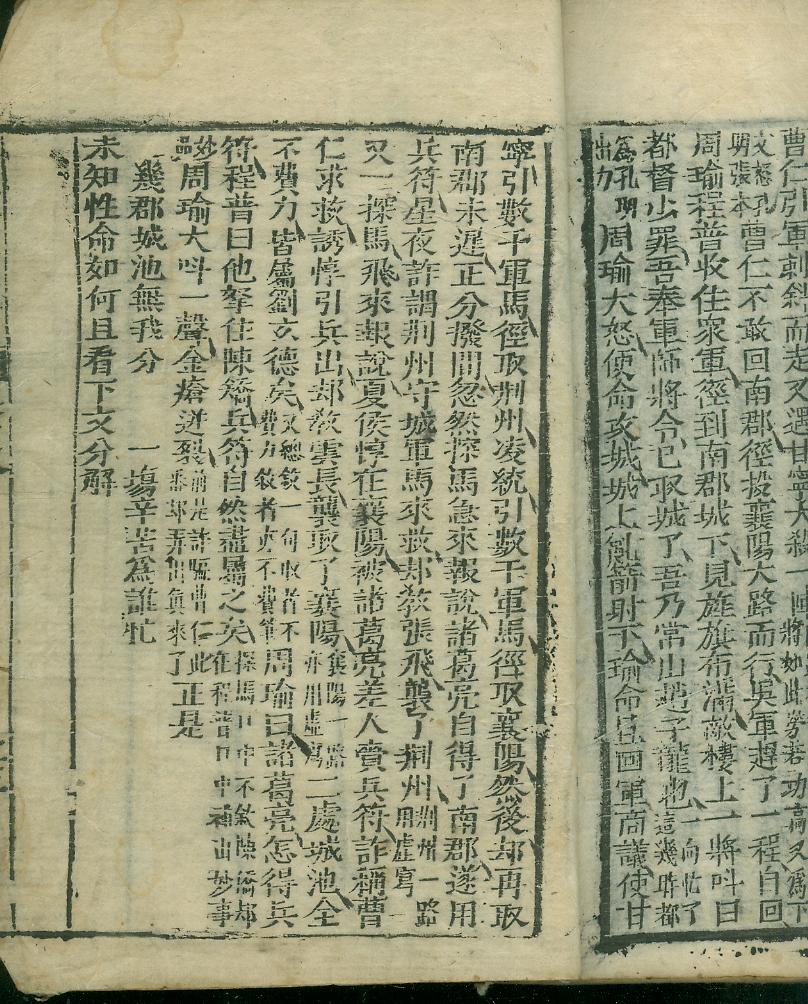 曹仁引軍刺斜而走又遇甘寧大殺一陣將妙此勞若功高又為下
文怒孔明張本曹仁不敢回南郡徑投襄陽大路而行吳軍趕了一程自回
周瑜程普收住衆軍徑到南郡城下見旌旗布滿敵樓上一將呌曰
都督少罪吾奉軍師將令已取城了吾乃常山趙子龍也一向忙了這幾時都
為孔明出力周瑜大怒便命攻城城上亂箭射下瑜命且回軍商議使甘
寧引數千軍馬徑取荆州凌統引數千軍馬徑取襄陽然後却再取
南郡未遲正分撥間忽然探馬急來報說諸葛亮自得了南郡遂用
兵符星夜詐調荆州守城軍馬來救却教張飛襲了荆州荆州一路用虚寫
又一探馬飛來報說夏侯惇在襄陽被諸葛亮差人賫兵符詐稱曹
仁求救誘惇引兵出却教雲長襲取了襄陽襄陽一路亦用虛寫二處城池全
不費力皆屬劉玄德矣又總敘一句收者不費力敘者亦不費筆周瑜曰諸葛亮怎得兵
符程普曰他拏住陳矯兵符自然盡屬之矣探馬口中不敘陳矯却在程普口中補出妙事
妙品周瑜大呌一聲金瘡迸裂前是詐騙曹仁此番却弄出眞來了正是
幾郡城池無我分 一場辛苦為誰忙
未知性命如何且看下文分解